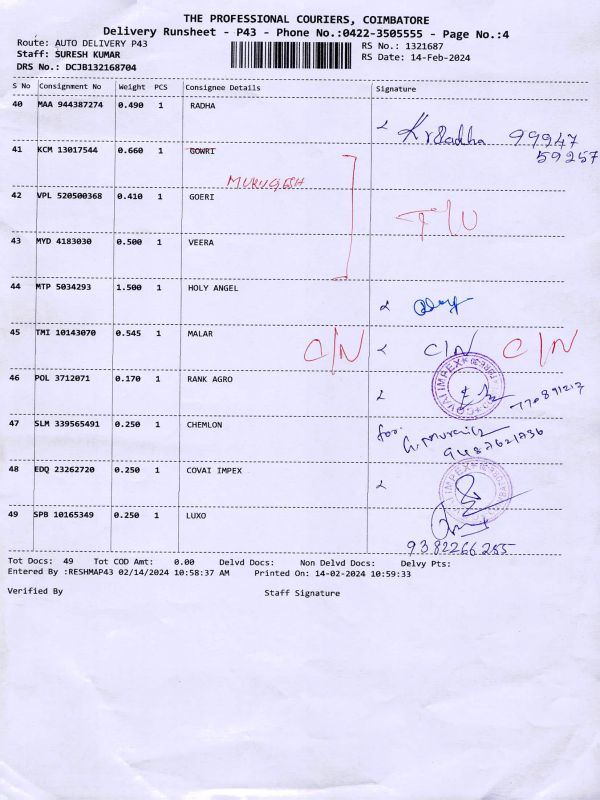 THE PROFESSIONAL COURIERS, COIMBATORE
Delivery Runsheet - P43 - Phone No.:0422-3505555 - Page No.:4
Route: AUTO DELIVERY P43 RS No.: 1321687
Staff: SURESH KUMAR RS Date: 14-Feb-2024
DRS No.: DCJB132168704
S No Consignment No Weight PCS Consignee Details Signature
40 MAA 944387274 0.490 1 RADHA
KrRadha 99947
59257
41 KCM 13017544 0.660 1 GOWRI
MURUGESH
42 VPL 520500368 0.410 1 GOERI
43 MYD 4183030 0.500 1 VEERA
44 MTP 5034293 1.500 1 HOLY ANGEL
45 TMI 10143070 0.545 1 MALAR
C/N C/N C/N
46 POL 3712071 0.170 1 RANK AGRO
COVAI IMPEX
47 SLM 339565491 0.250 1 CHEMLON
for.
9487621736
48 EDQ 23262720 0.250 1 COVAI IMPEX
49 SPB 10165349 0.250 1 LUXO
9382266255
Tot Docs: 49 Tot COD Amt: 0.00 Delvd Docs: Non Delvd Docs: Delvy Pts:
Entered By :RESHMAP43 02/14/2024 10:58:37 AM Printed On: 14-02-2024 10:59:33
Verified By Staff Signature